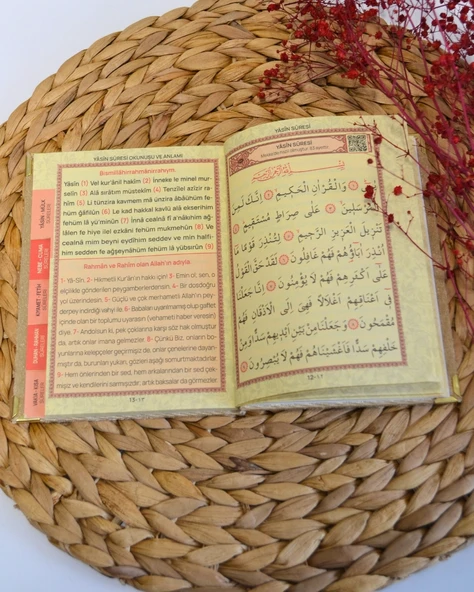 YÂSÎN SÛRESİ OKUNUŞU VE ANLAMI
Bismillâhirrahmânirrahîym.
Yâsîn (1) Vel kur'ânil hakîm (2) İnneke le minel mur-
selîn (3) Alâ sırâtım müstekîm (4) Tenzîlel azîzir ra-
hîm (5) Li tünzira kavmem mâ ünzira âbâühüm fe-
hüm ğâfilûn (6) Le kad hakkal kavlü alâ ekserihim
fehüm lâ yü'minûn (7) İnnâ cealnâ fî a'nâkıhim ağ-
lâlen fe hiye ilel ezkâni fehüm mukmehûn (8) Ve
cealnâ mim beyni eydîhim seddev ve min halfi-
him sedden fe ağşeynâhüm fehüm lâ yübsırûn (9)
Rahmân ve Rahîm olan Allah'ın adıyla.
1- Yâ-Sîn. 2- Hikmetli Kur'ân'ın hakkı için! 3- Emin ol, sen, o
elçilikle gönderilen peygamberlerdensin. 4- Bir dosdoğru
yol üzerindesin. 5- Güçlü ve çok merhametli Allah'ın pey-
derpey indirdiği vahyi ile, 6- Babaları uyarılmamış olup gaflet
içinde olan bir toplumu uyarasın
7- Andolsun ki, pek çoklarına karşı söz hak olmuştur
da, artık onlar imana gelmezler. 8- Çünkü Biz, onların bo-
yunlarına
9- Hem önlerinden bir sed, hem arkalarından bir sed çek-
mişiz ve kendilerini sarmışızdır, artık baksalar da görmezler.
YÂSÎN SÛRESİ
YÂSÎN SÛRESİ
بِسْمِ اللّٰهِ الرَّحْمٰنِ الرَّحِيمِ
وَالْقُرْاٰنِ الْحَكِيمِ اِنَّكَ لَمِنَ
الْمُرْسَلِينَ عَلٰى صِرَاطٍ مُسْتَقِيمٍ
تَنْزِيلَ الْعَزِيزِ الرَّحِيمِ لِتُنْذِرَ قَوْمًا مَا
اُنْذِرَ اٰبَاؤُهُمْ فَهُمْ غَافِلُونَ لَقَدْ حَقَّ الْقَوْلُ
عَلٰى اَكْثَرِهِمْ فَهُمْ لَا يُؤْمِنُونَ اِنَّا جَعَلْنَا
فِى اَعْنَاقِهِمْ اَغْلَالًا فَهِىَ اِلَى الْاَذْقَانِ فَهُمْ
مُقْمَحُونَ وَجَعَلْنَا مِنْ بَيْنِ اَيْدِيهِمْ سَدًّا وَمِنْ
خَلْفِهِمْ سَدًّا فَاَغْشَيْنَاهُمْ فَهُمْ لَا يُبْصِرُونَ